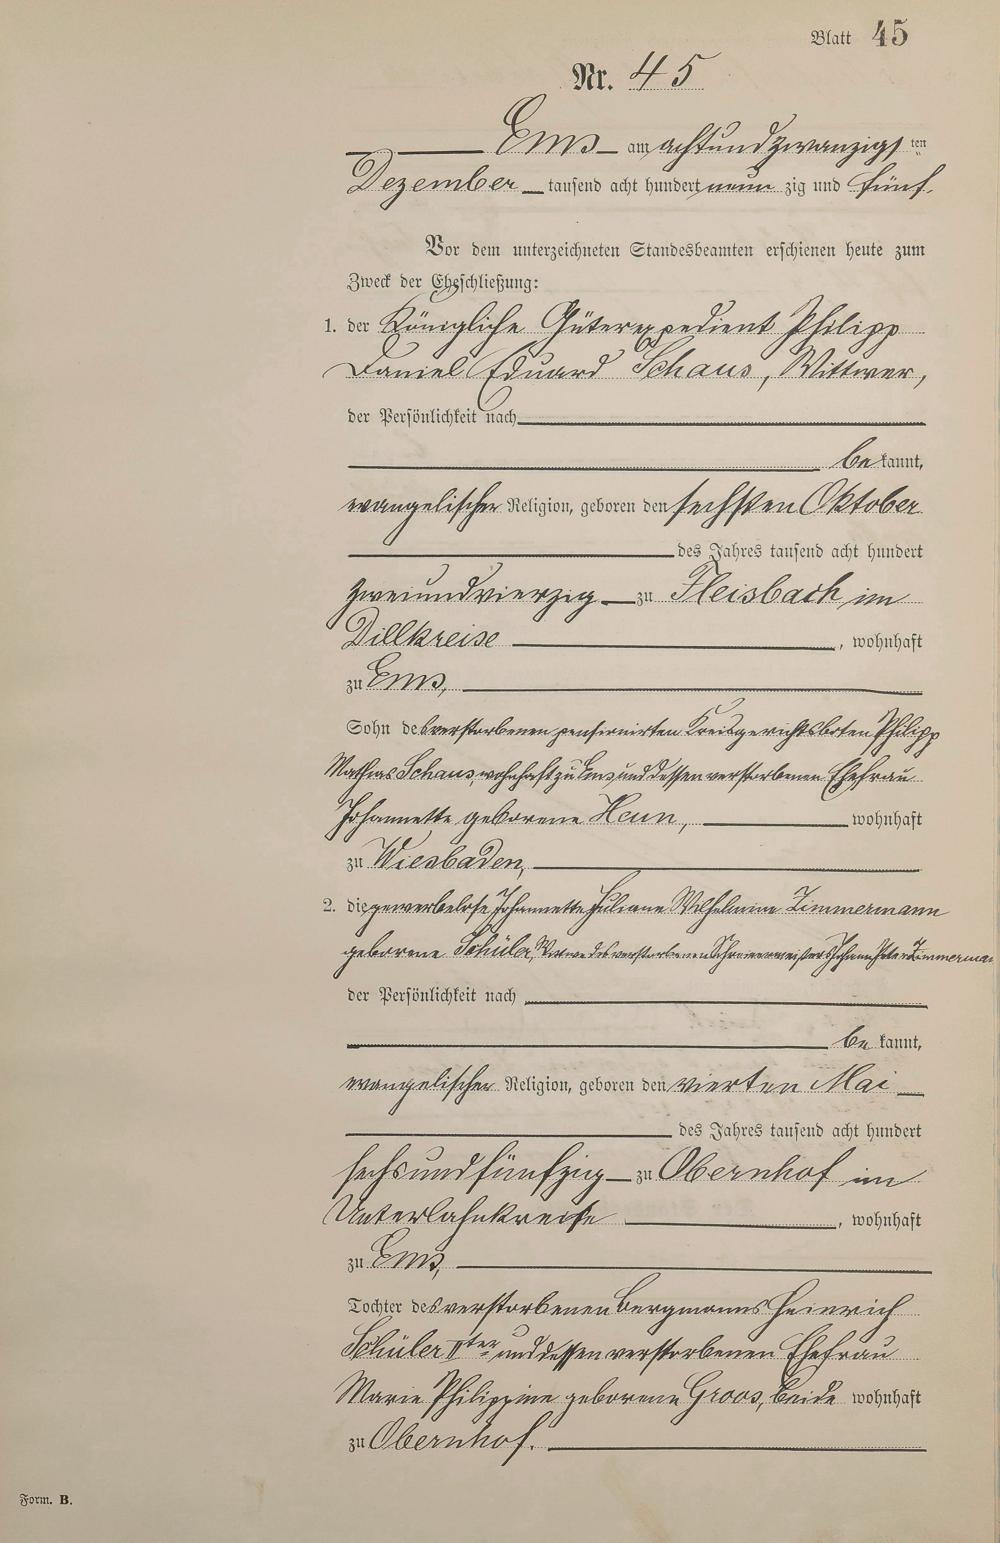 Blatt 45
Nr. 45
Ems am achtundzwanzigsten
Dezember tausend acht hundert neunzig und fünf.
Vor dem unterzeichneten Standesbeamten erschienen heute zum
Zweck der Eheschließung:
1. der Königliche Güterexpedient Philipp
Daniel Eduard Schaus, Wittwer,
der Persönlichkeit nach
bekannt,
evangelischer Religion, geboren den sechsten Oktober
des Jahres tausend acht hundert
zweiundvierzig zu Fleisbach im
Dillkreise, wohnhaft
zu Ems,
Sohn des verstorbenen pensionirten Kreisgerichtsboten Philipp
Mathias Schaus, wohnhaft zu Ems, und dessen verstorbenen Ehefrau
Johannette geborene Heun, wohnhaft
zu Wiesbaden,
2. die gewerbelose Johannette Juliane Wilhelmine Zimmermann
geborene Schüler, Witwe des verstorbenen Schreinermeisters Johann Peter Zimmermann
der Persönlichkeit nach
bekannt,
evangelischer Religion, geboren den vierten Mai
des Jahres tausend acht hundert
sechsundfünfzig zu Obernhof im
Unterlahnkreise, wohnhaft
zu Ems,
Tochter des verstorbenen Bergmanns Heinrich
Schüler IIter und dessen verstorbenen Ehefrau
Marie Philippine geborene Groos, beide wohnhaft
zu Obernhof.
Form. B.